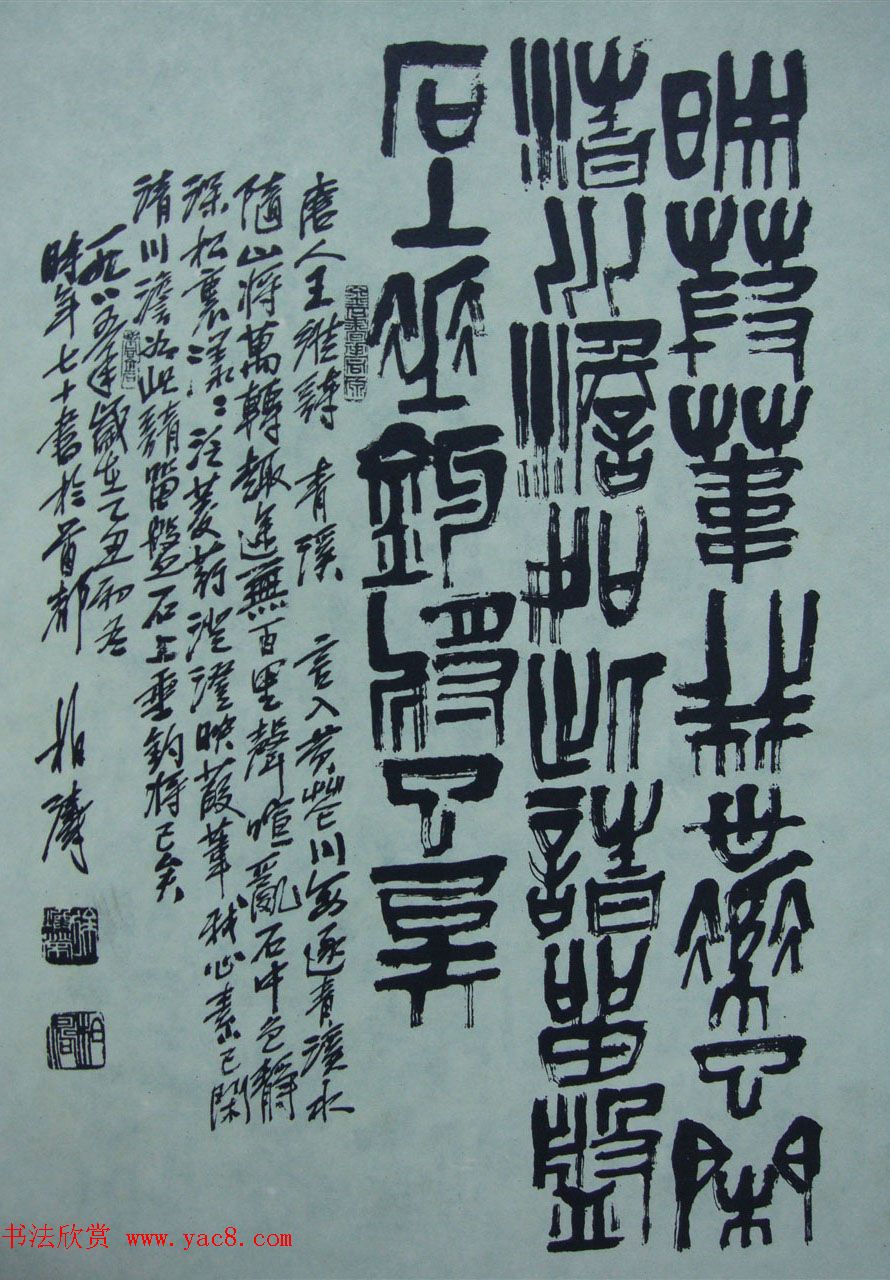 映葭葦我心素已閑
清川澹如此請留盤
石上垂釣將已矣
唐人王維詩 青溪 言入黃花川每逐青溪水
隨山將萬轉趣途無百里聲喧亂石中色靜
深松裏漾〻泛菱荇澄澄映葭葦我心素已閑
清川澹如此請留盤石上垂釣將已矣
一九八五年歲在乙丑初冬
時年七十書於首都 柏濤
书法欣赏 www.yac8.com